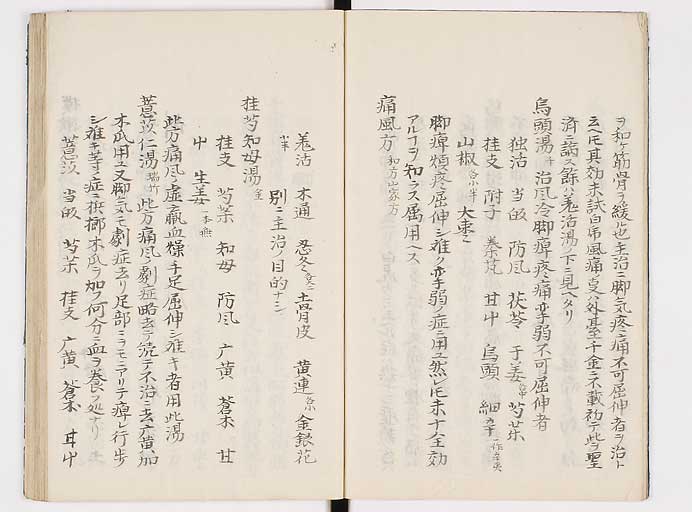 ヲ和ケ筋骨ヲ緩也主治ニ脚気疼痛不可屈伸者ヲ治ト
云ヘ𪜈其効未試白帋風痛ハ外臺千金ニ不載初テ此ヲ聖
済ニ満ス餘ハ羗活湯ノ下ニ見ヘタリ
烏頭湯 治風冷脚痺疼痛挛弱不可屈伸者
独活 当皈 防風 茯苓 于姜 芍薬
桂支 附子 秦艽 甘中 烏頭 細辛
山椒 大棗
脚痺煩疼屈伸シ難ク挛弱ノ症ニ用ユ然レ𪜈未十全効
アルヿヲ知ラス屈用ヘス
痛風方 和方家方
羗活 木通 忍冬 土骨皮 黄連 金銀花
別ニ主治ノ目的ナシ
桂芍知母湯 金
桂支 芍薬 知母 防風 广黄 蒼朮 甘
中 生姜
此方痛風ノ虚羸血燥手足屈伸シ難キ者用此湯
薏苡仁湯 瑞竹 此方痛風ノ劇症略去テ荒テ不治ニ麻黄加
木瓜用ユ又脚気モ劇症去リ足部ニラモニアリテ痺レ行歩
シ難キ等ノ症ニ梹榔木瓜ヲ加フ何分ニ血ヲ養フ処ナリ
薏苡 当皈 芍薬 桂支 广黄 蒼朮 甘中